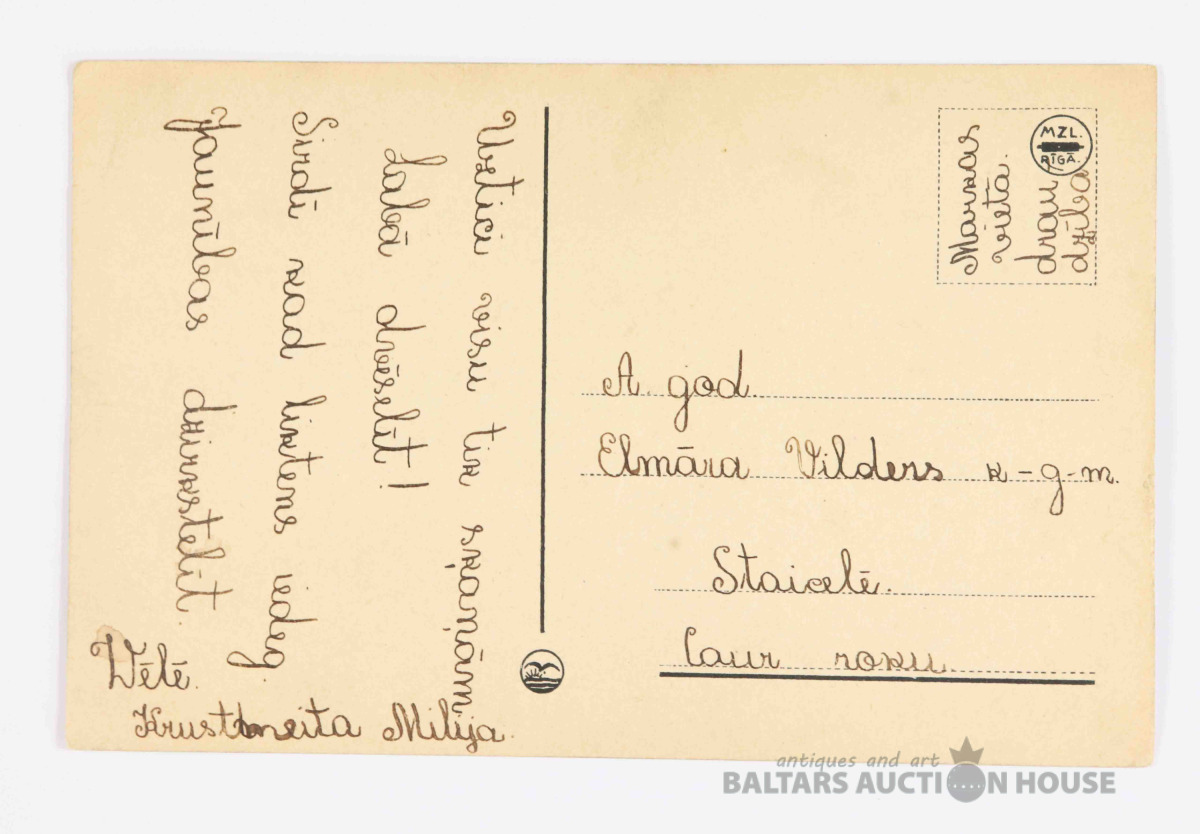 Uztici visu tik skaņām
Labā dvēselīt!
Sirdī kad liktens iedeg
Jaunības dzirkstelīt.
Vēlē.
Krustmeita Milija.
MZL.
RĪGĀ.
Markas
vieta.
drau
dzība
A. god.
Elmāra Vilders k-g-m.
Staicelē.
Caur roku.
antiques and art
BALTARS AUCTION HOUSE